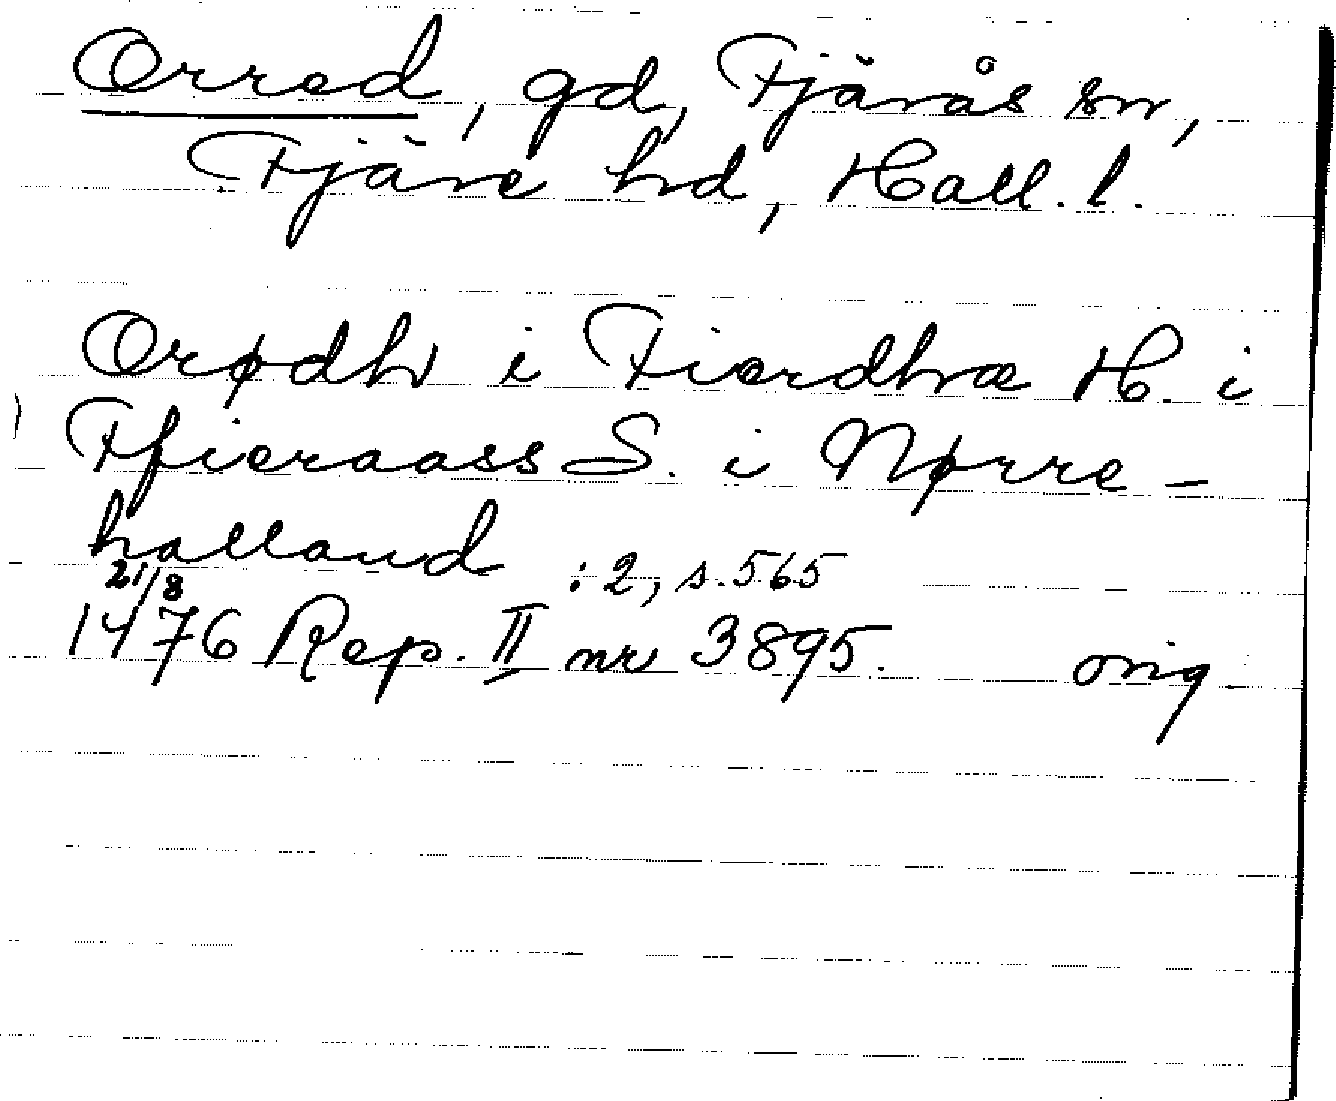 Orred, gd, Fjärås sn,
Fjäre hd, Hall. l.
Orødh i Fierdhræ H. i
Ffieraass S. i Nørre-
halland :2, s. 565
21/8
1476 Rep. II nr 3895. orig